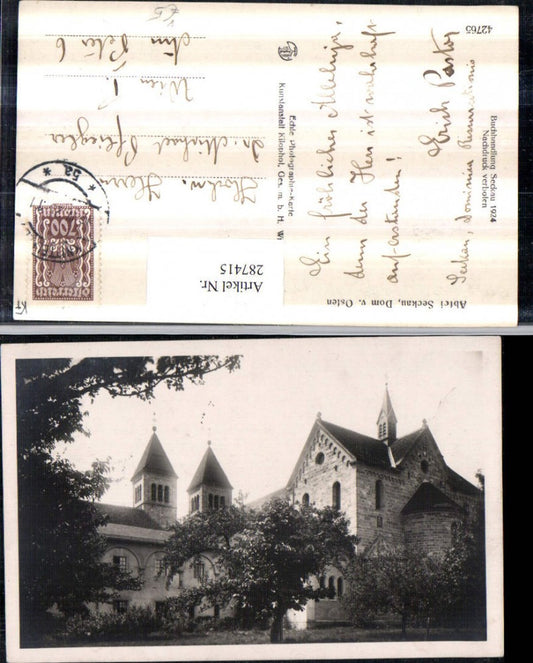 Abtei Seckau, Dom v. Osten
Buchhandlung Seckau 1924
Nachdruck verboten
42765
Ein fröhliches Alleluja,
denn der Herr ist wahrhaft
auferstanden!
Erich Pastor
Seckau, Dominica Resurrectionis
Echte Photographie-Karte
Kunstanstalt Kilophot, Ges. m. b. H. Wi
Hochw. Herrn
Dr. Michael Pfliegler
Wien I.
Am Peter 6
Artikel Nr.
287415
700
* 5a *